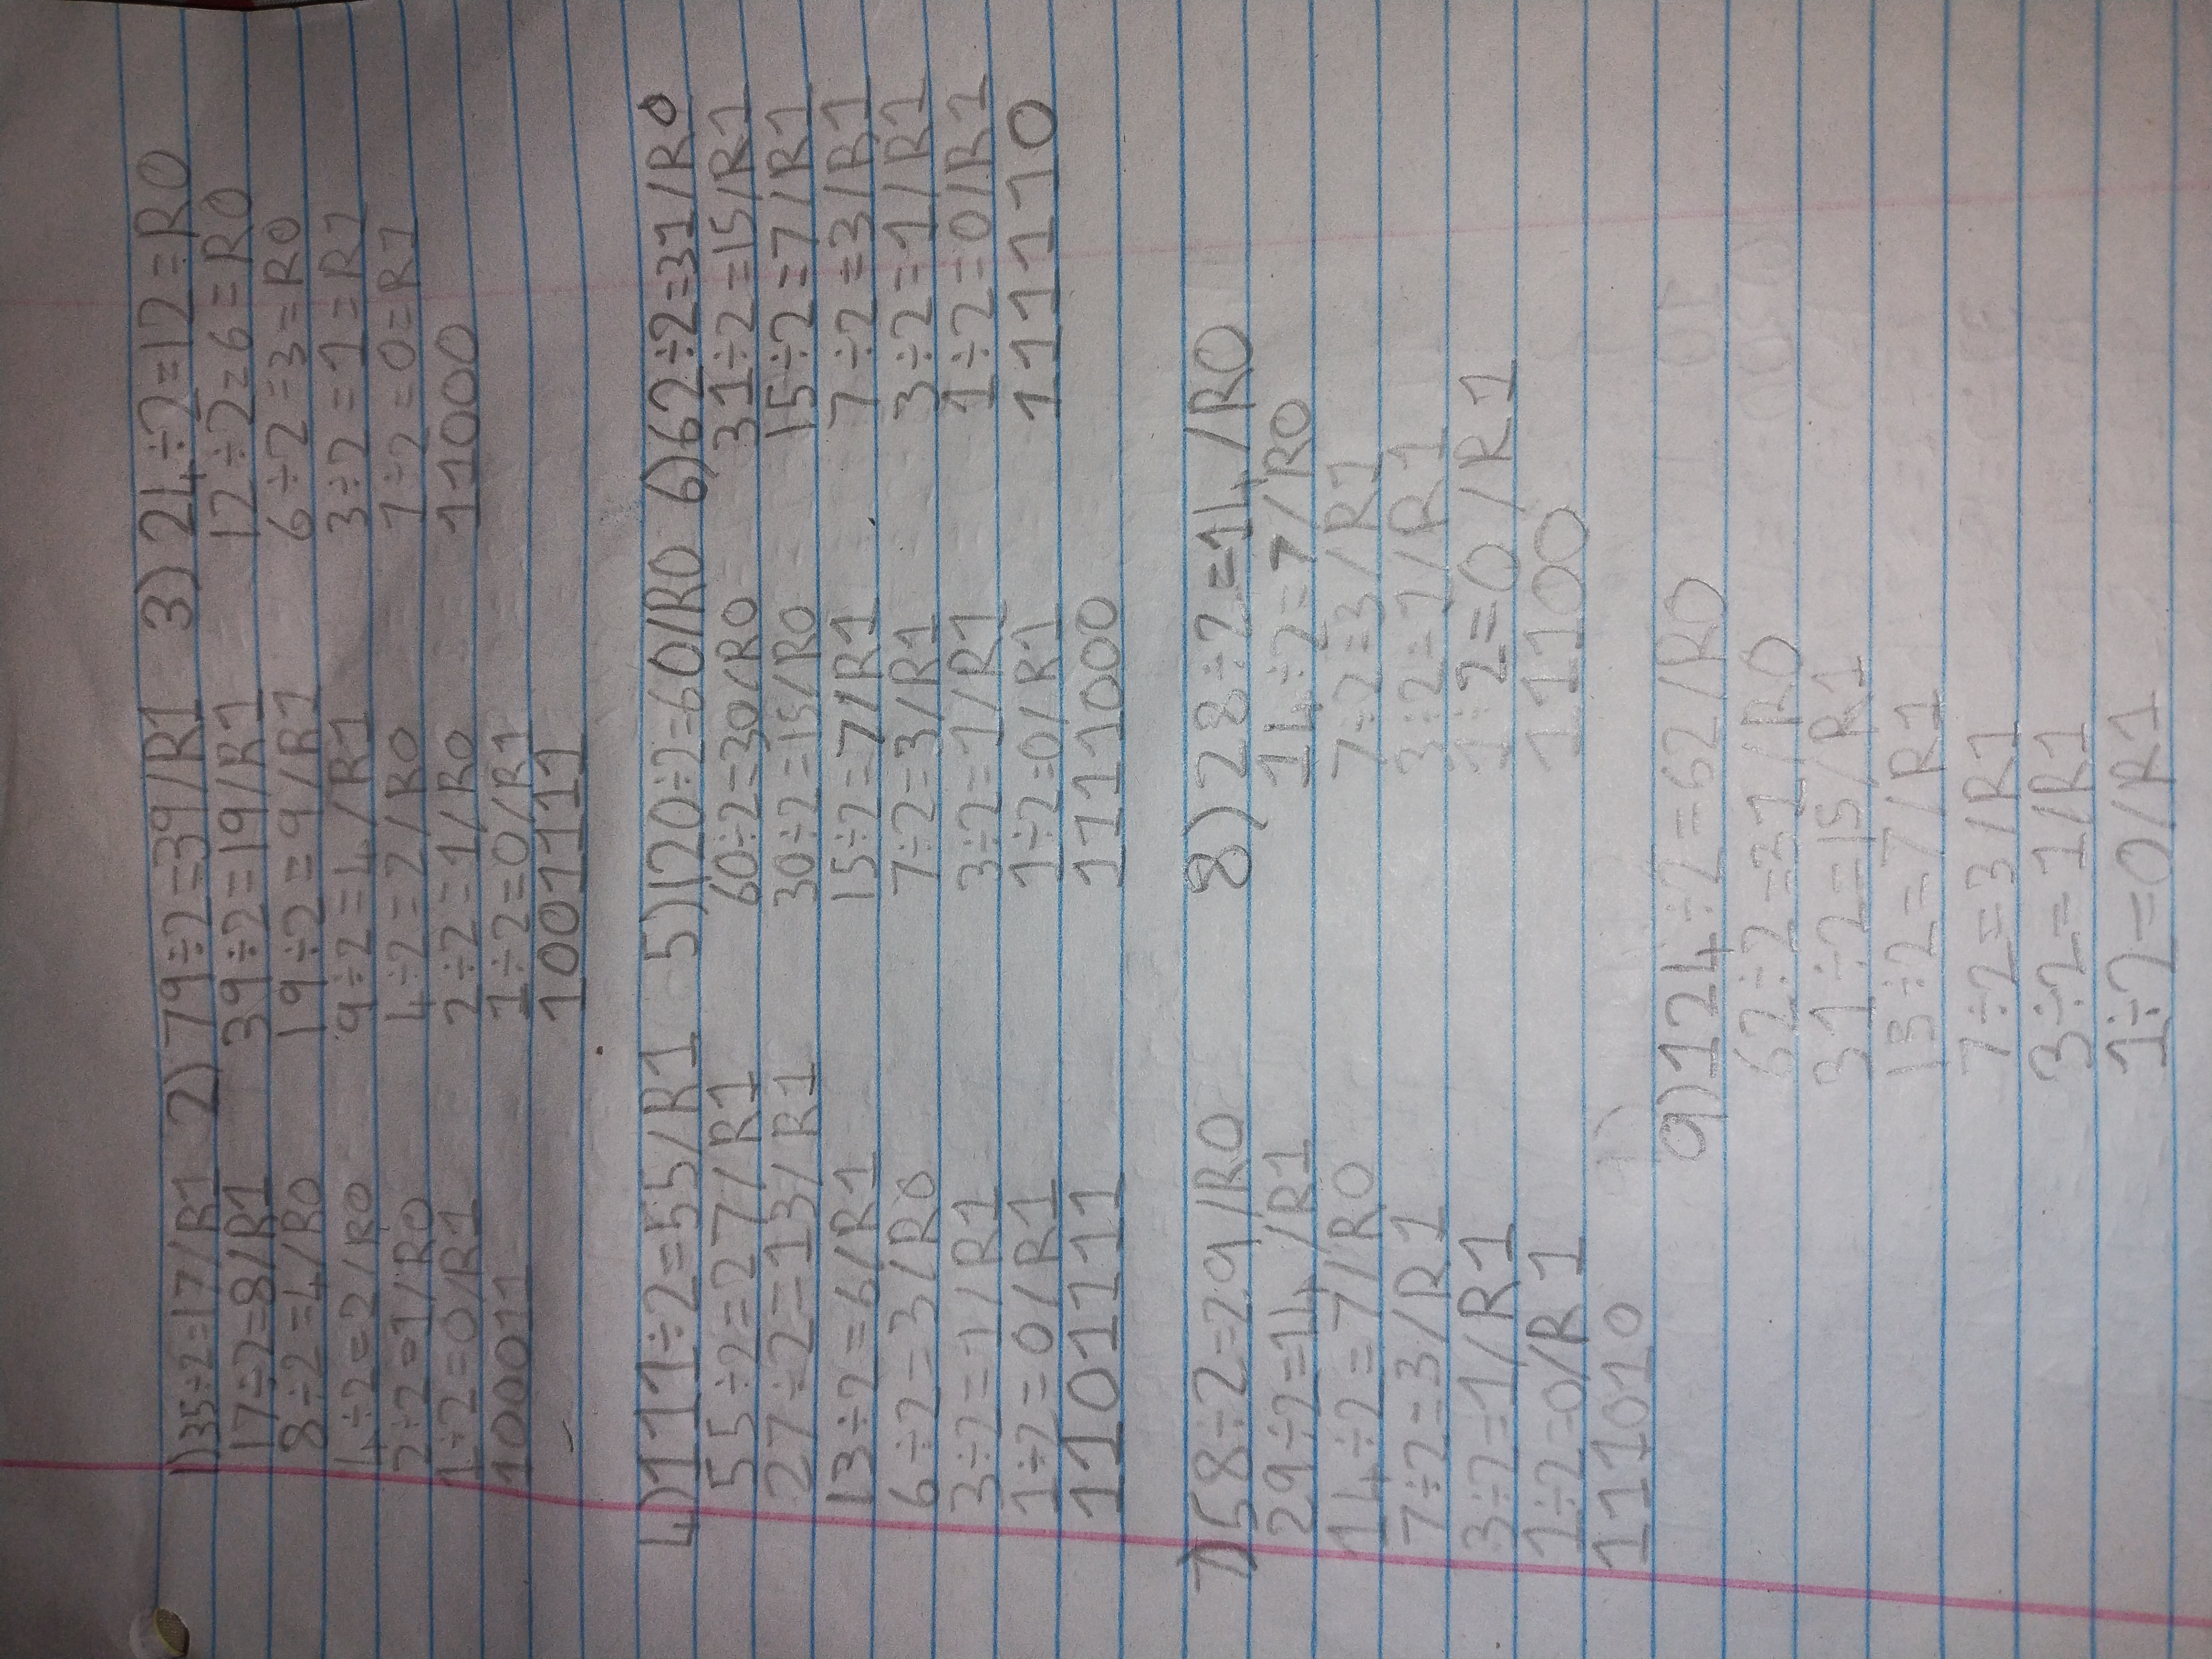 1) 35÷2=17/R1
17÷2=8/R1
8÷2=4/R0
4÷2=2/R0
2÷2=1/R0
1÷2=0/R1
100011
2) 79÷2=39/R1
39÷2=19/R1
19÷2=9/R1
9÷2=4/R1
4÷2=2/R0
2÷2=1/R0
1÷2=0/R1
1001111
3) 24÷2=12=R0
12÷2=6=R0
6÷2=3=R0
3÷2=1=R1
1÷2=0=R1
11000
4) 111÷2=55/R1
55÷2=27/R1
27÷2=13/R1
13÷2=6/R1
6÷2=3/R0
3÷2=1/R1
1÷2=0/R1
1101111
5) 120÷2=60/R0
60÷2=30/R0
30÷2=15/R0
15÷2=7/R1
7÷2=3/R1
3÷2=1/R1
1÷2=0/R1
1111000
6) 62÷2=31/R0
31÷2=15/R1
15÷2=7/R1
7÷2=3/R1
3÷2=1/R1
1÷2=0/R1
111110
7) 58÷2=29/R0
29÷2=14/R1
14÷2=7/R0
7÷2=3/R1
3÷2=1/R1
1÷2=0/R1
111010
8) 28÷2=14/R0
14÷2=7/R0
7÷2=3/R1
3÷2=1/R1
1÷2=0/R1
11100
9) 124÷2=62/R0
62÷2=31/R0
31÷2=15/R1
15÷2=7/R1
7÷2=3/R1
3÷2=1/R1
1÷2=0/R1